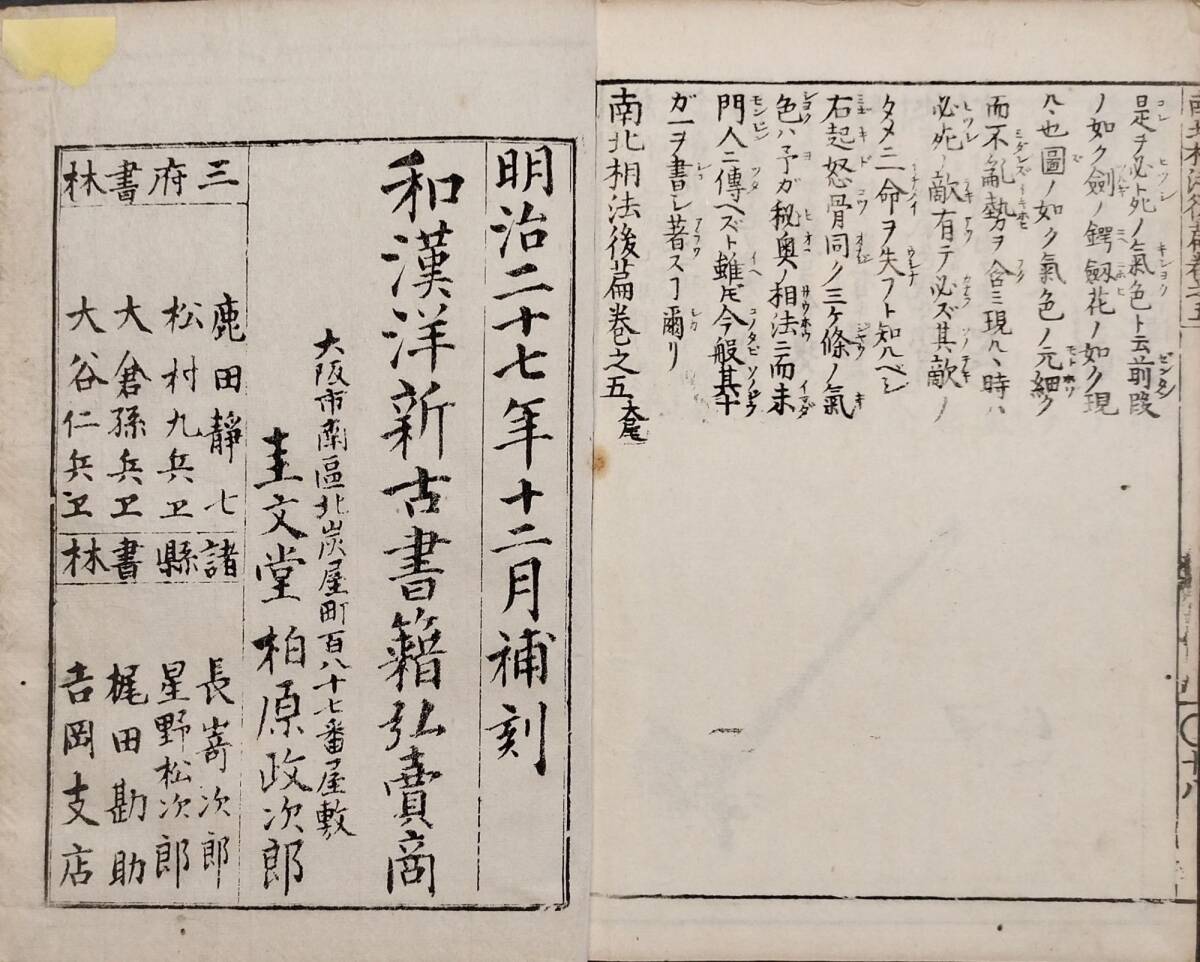 是ヲ必ト死ノ氣色ト云前段
ノ如ク劍ノ鍔劔花ノ如ク現
ハヽ也圖ノ如ク氣色ノ元細ク
而不亂勢ヲ含ミ現ハヽ時ハ
必死ノ敵有テ必ズ其敵ノ
タメニ一命ヲ失フト知ルベシ
右起怒骨同ク三ケ條ノ氣
色ハ予ガ秘奥ノ相法ニ而未
門人ニ傳ヘズト雖𪜈今般其十
ガ一ヲ書シ著スヿ爾リ
南北相法後篇卷之五大尾
十八
明治二十七年十二月補刻
和漢洋新古書籍弘賣商
大阪市南區北炭屋町百八十七番屋敷
圭文堂 柏原政次郎
三府書林
鹿田靜七
松村九兵卫
大倉孫兵卫
大谷仁兵卫
諸縣書林
長嵜次郎
星野松次郎
梶田勘助
吉岡支店